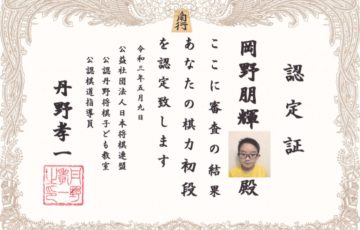 認定証
岡野朋輝殿
ここに審査の結果
あなたの棋力初段
を認定致します
令和三年五月九日
公益社団法人日本将棋連盟
公認丹野将棋子ども教室
公認棋道指導員
丹野孝一